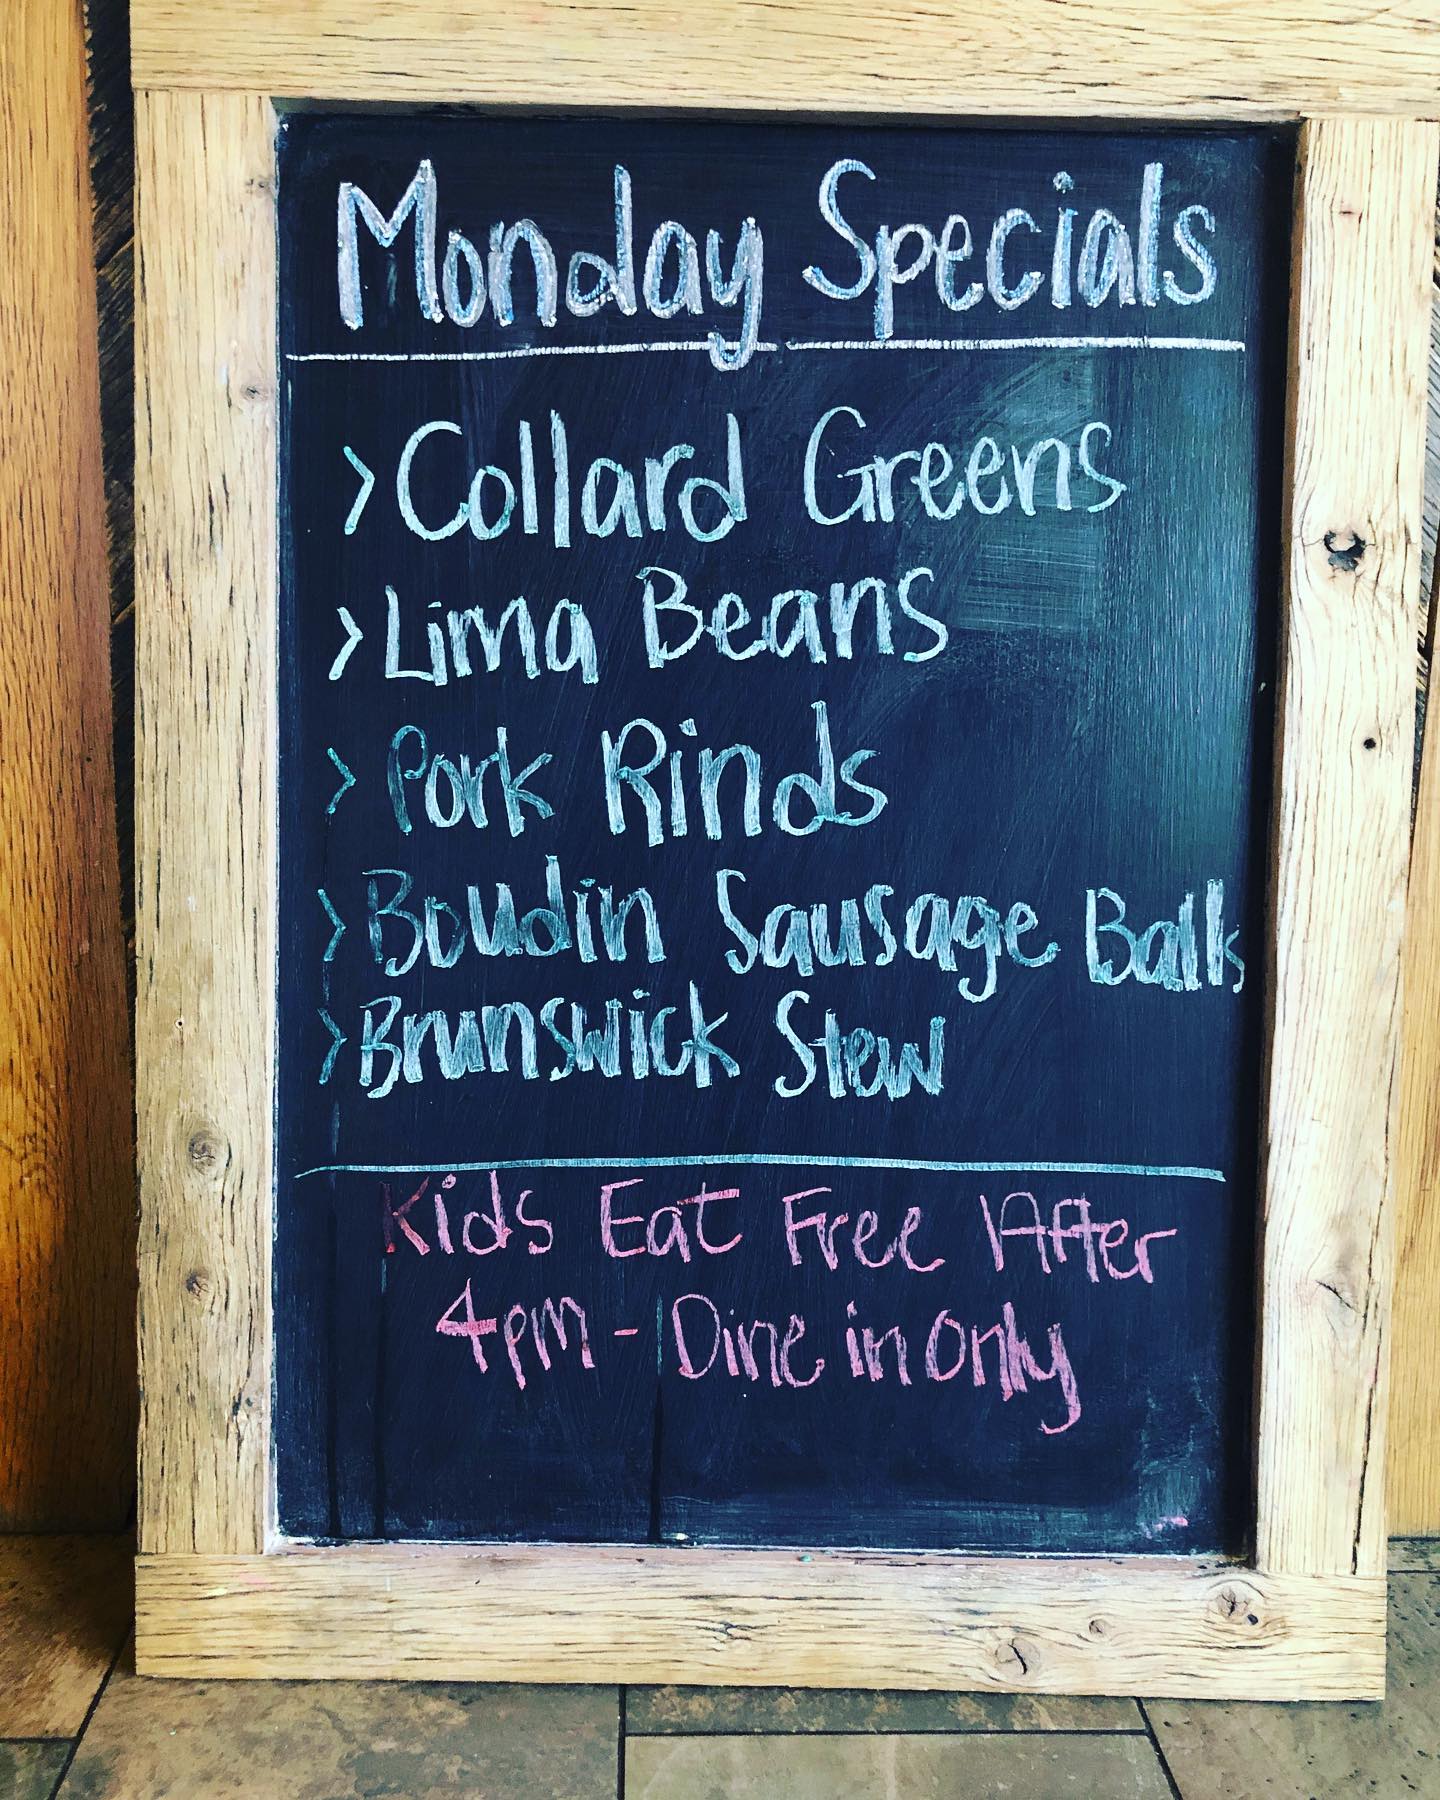 Monday Specials
> Collard Greens
> Lima Beans
> Pork Rinds
> Boudin Sausage Balls
> Brunswick Stew
Kids Eat Free After
4pm - Dine in only